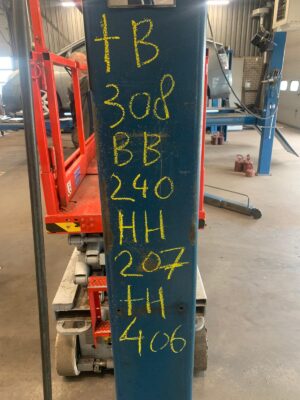 tB
308
BB
240
HH
207
tH
406